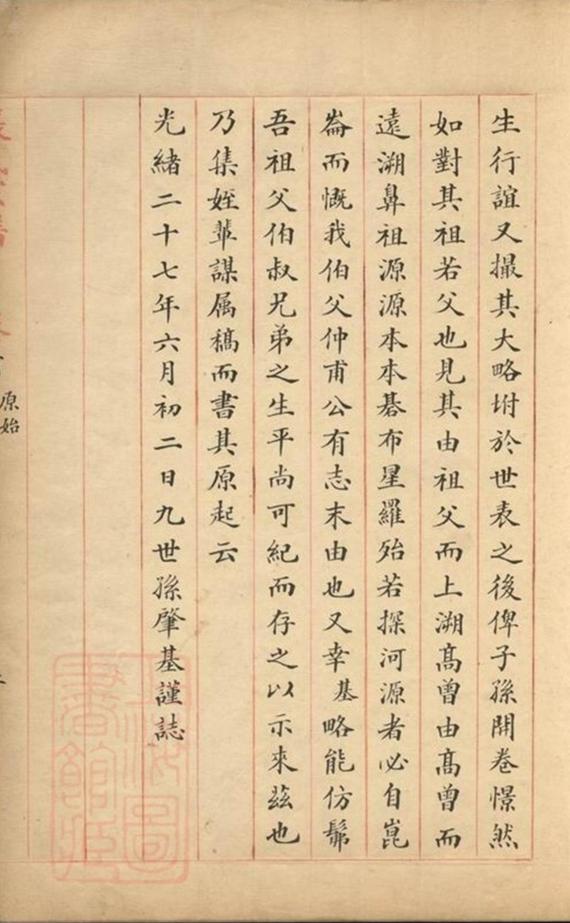 生行誼又撮其大略坿於世表之後俾子孫開卷憬然
如對其祖若父也見其由祖父而上溯高曾由高曾而
遠溯鼻祖源源本本碁布星羅殆若探河源者必自崑
崙而慨我伯父仲甫公有志末由也又幸基略能仿髴
吾祖父伯叔兄弟之生平尚可紀而存之以示來茲也
乃集姪輩謀属稿而書其原起云
光緒二十七年六月初二日九世孫肇基謹誌
原始